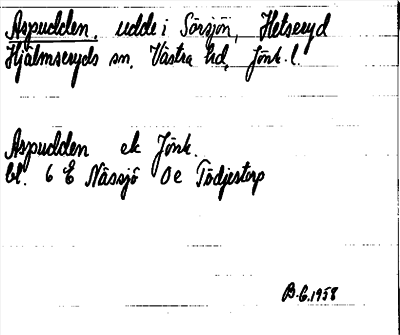 Aspudden, udde i Sörsjön, Hetseryd
Hjälmseryds sn, Västra hd, Jönk. l.
Aspudden ek Jönk.
bl. 6 E Nässjö 0e Tödjestorp
B.G. 1958